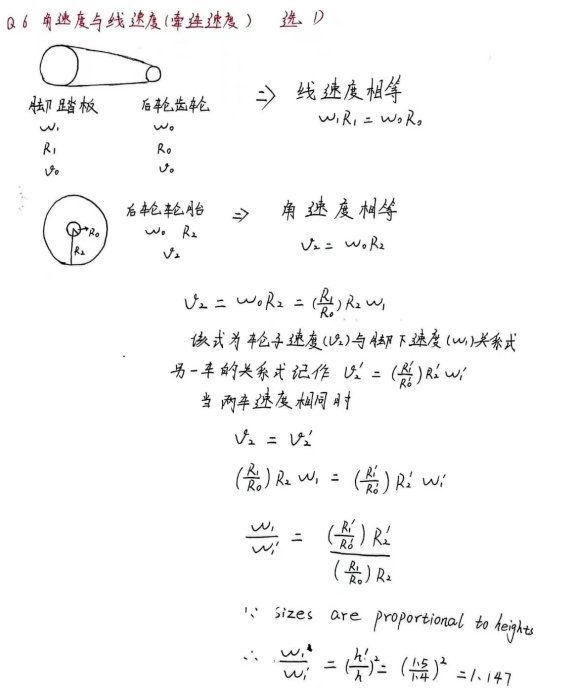 Q6 角速度与线速度(牵连速度) 选 D
脚踏板 后轮齿轮 ⇒ 线速度相等
ω₁ ω₀ ω₁R₁ = ω₀R₀
R₁ R₀
v₀ v₀
R₀
R₂
后轮轮胎 ⇒ 角速度相等
ω₀ R₂ v₂ = ω₀R₂
v₂
v₂ = ω₀R₂ = (R₁/R₀) R₂ ω₁
该式为车轮子速度(v₂)与脚下速度(ω₁)关系式
另一车的关系式记作 v₂′ = (R₁′/R₀′) R₂′ ω₁′
当两车速度相同时
v₂ = v₂′
(R₁/R₀) R₂ ω₁ = (R₁′/R₀′) R₂′ ω₁′
ω₁/ω₁′ = (R₁′/R₀′) R₂′ / (R₁/R₀) R₂
∵ sizes are proportional to heights
∴ ω₁/ω₁′ = (h′/h)² = (1.5/1.4)² = 1.147